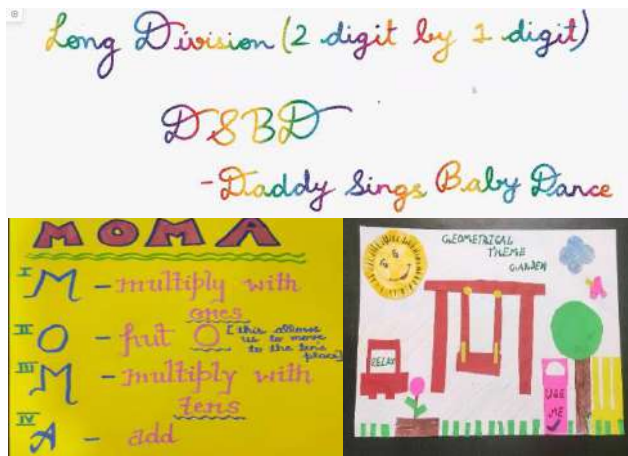 Long Division (2 digit by 1 digit)
DSBD
- Daddy Sings Baby Dance
MOMA
I M - multiply with
ones
II O - put O [this allows
us to move
to the tens
place]
III M - multiply with
tens
IV A - add
GEOMETRICAL
THEME
GARDEN
RELAX
USE
ME